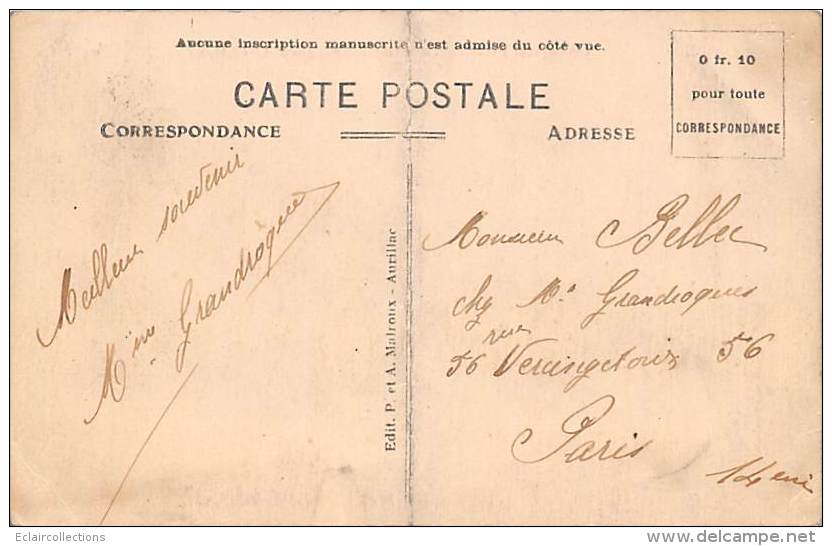 Aucune inscription manuscrite n'est admise du côté vue.
CARTE POSTALE
CORRESPONDANCE
ADRESSE
0 fr. 10
pour toute
CORRESPONDANCE
Meilleur souvenir
Mme Grandroques
Edit. P. et A. Malroux - Aurillac
Monsieur Bellec
chz Mr Grandroques
rue
56 Vercingetorix 56
Paris
14 eme
Eclaircollections
www.delcampe.net